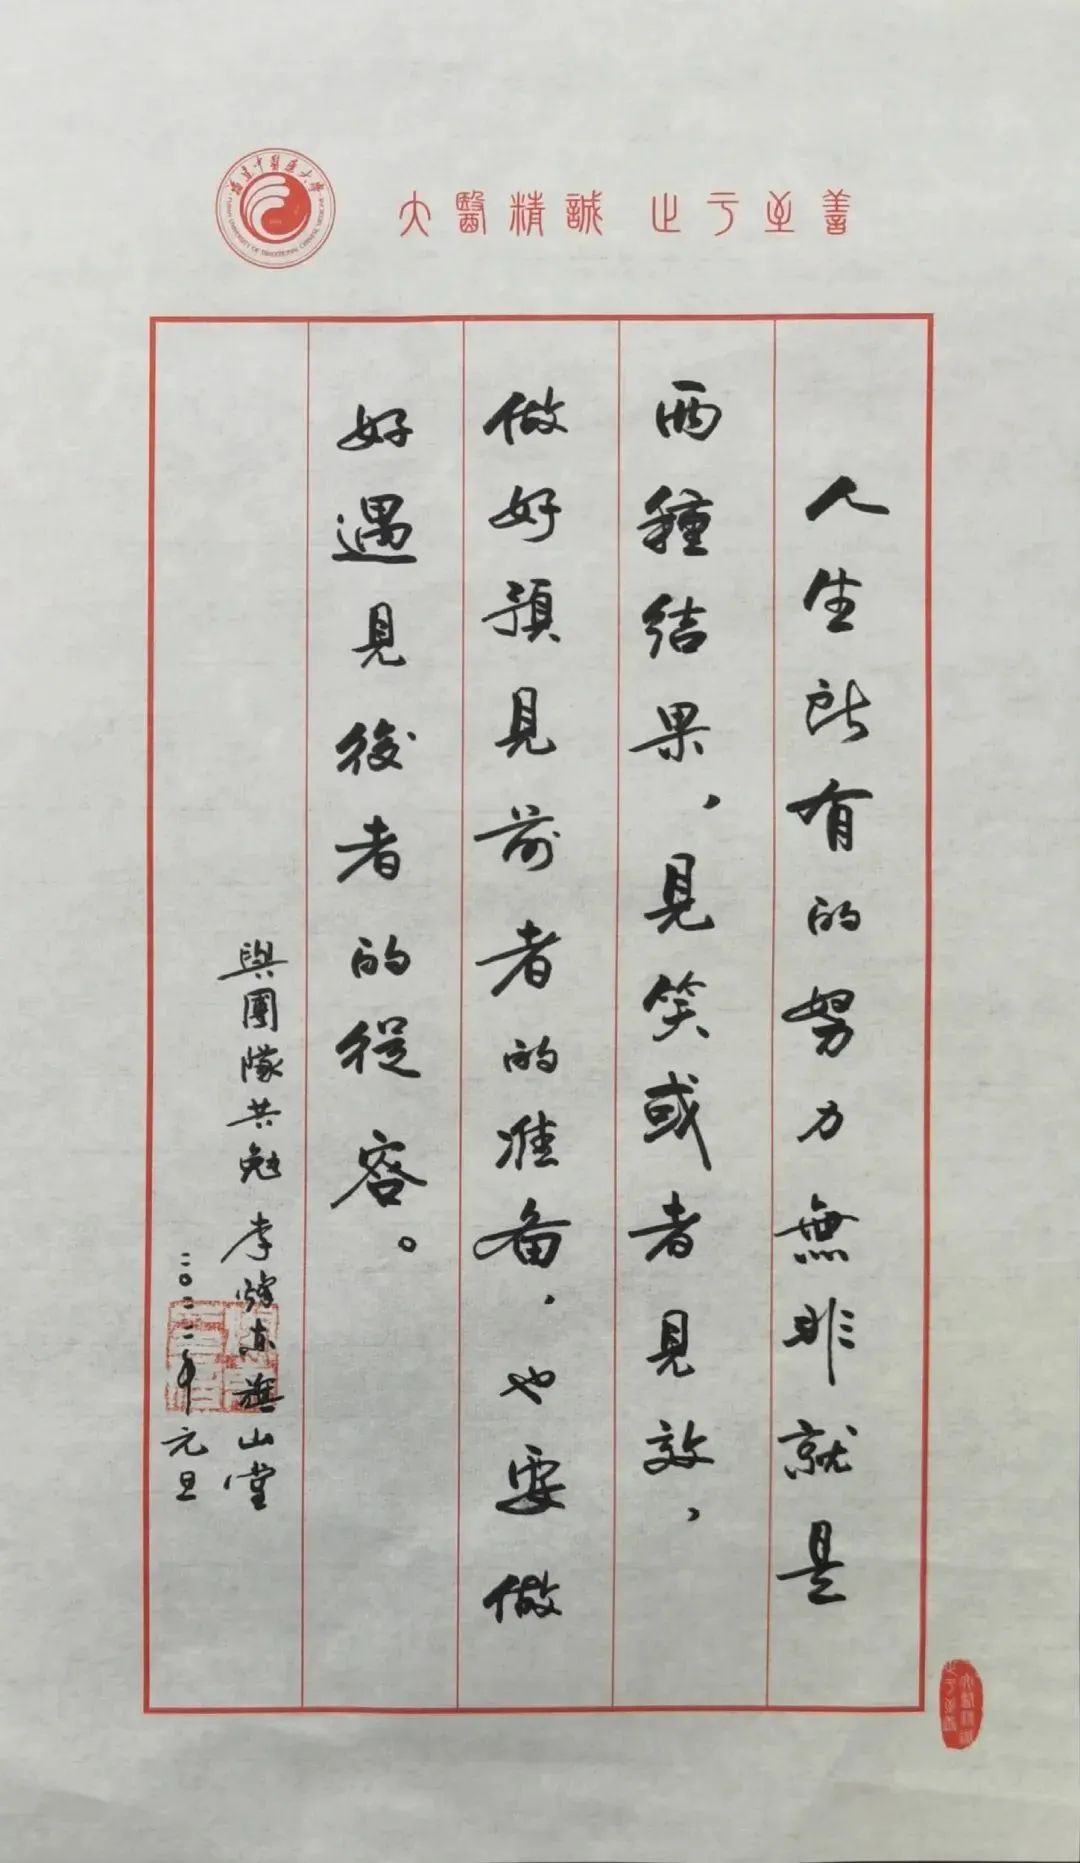 福建中醫藥大學
FUJIAN UNIVERSITY OF TRADITIONAL CHINESE MEDICINE
大醫精誠 止于至善
人生所有的努力無非就是
兩種結果，見笑或者見效，
做好預見前者的准备，也要做
好遇見後者的從容。
與團隊共勉 李燦東 旗山堂
二〇二二年元旦
大醫精誠
止于至善